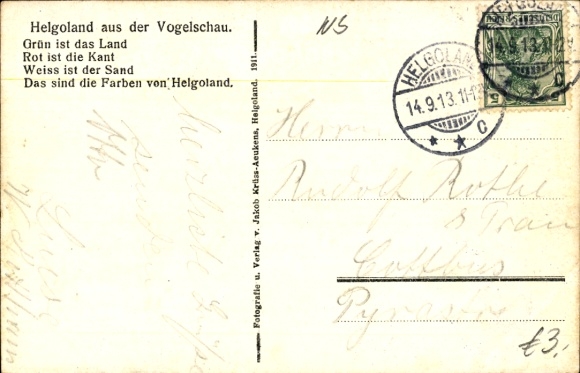 Helgoland aus der Vogelschau.
Grün ist das Land
Rot ist die Kant
Weiss ist der Sand
Das sind die Farben von Helgoland.
NS
Fotografie u. Verlag v. Jakob Krüss-Aeukens, Helgoland. 1911.
HELGOLAND
14.9.13.11-12
* * C
14.9.13.11-12
* C
5 5
Herrn
Rudolf Rothe
& Frau
Cottbus
Herzliche Grüße
sendet
£3.